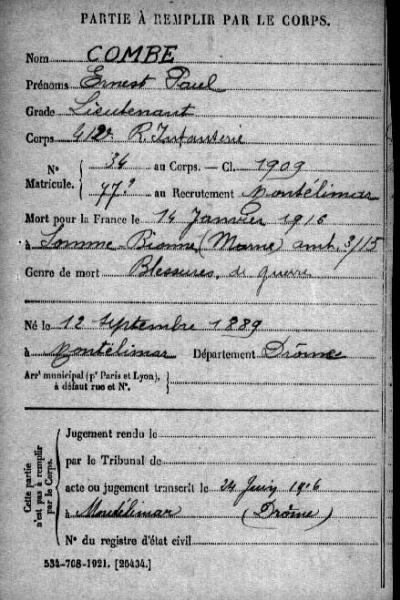 PARTIE À REMPLIR PAR LE CORPS.
Nom COMBE
Prénoms Ernest Paul
Grade Lieutenant
Corps 412e R. Infanterie
N° Matricule. { 34 au Corps. — Cl. 1909
77? au Recrutement Montélimar
Mort pour la France le 14 Janvier 1916
à Somme-Bionne (Marne) amb. 3/15
Genre de mort Blessures de guerre
Né le 12 Septembre 1889
à Montélimar Département Drôme
Arrt municipal (pr Paris et Lyon), à défaut rue et N°.
Cette partie n'est pas à remplir par le Corps.
Jugement rendu le
par le Tribunal de
acte ou jugement transcrit le 24 Juin 1916
à Montélimar (Drôme)
N° du registre d'état civil
534-708-1921. [26434.]